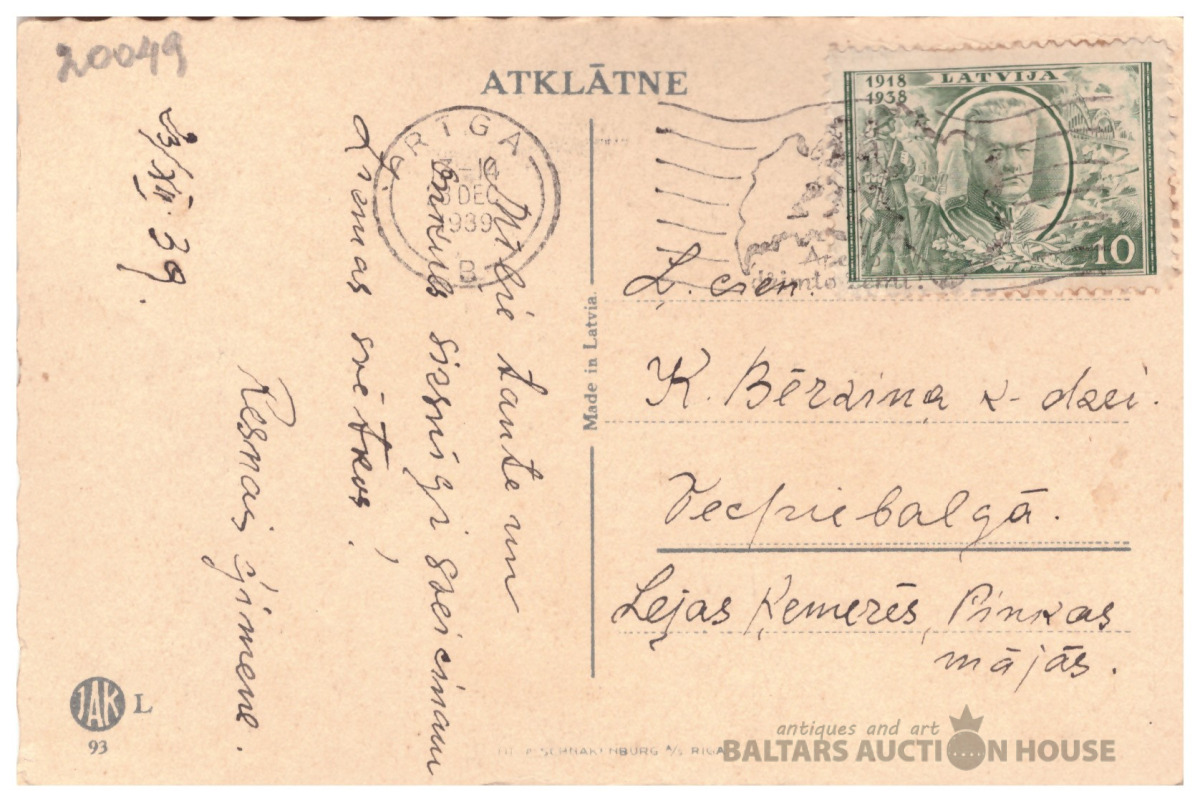 20049
ATKLĀTNE
1918
1938
LATVIJA
10
RIGA
14
DEC
1939
B
dzimto zemi!
23/XII. 39.
Mīļie tante un
onkuls sirsnīgi sveicinam
Ziemas svētkos!
Resnais ģimene.
Made in Latvia.
Ļ. cien.
K. Bērziņa k-dzei.
Vecpiebalgā.
Lejas Ķemerēs, Pinkas
mājās.
JAK L
93
SCHNAKENBURG A/S RIGA
antiques and art
BALTARS AUCTION HOUSE